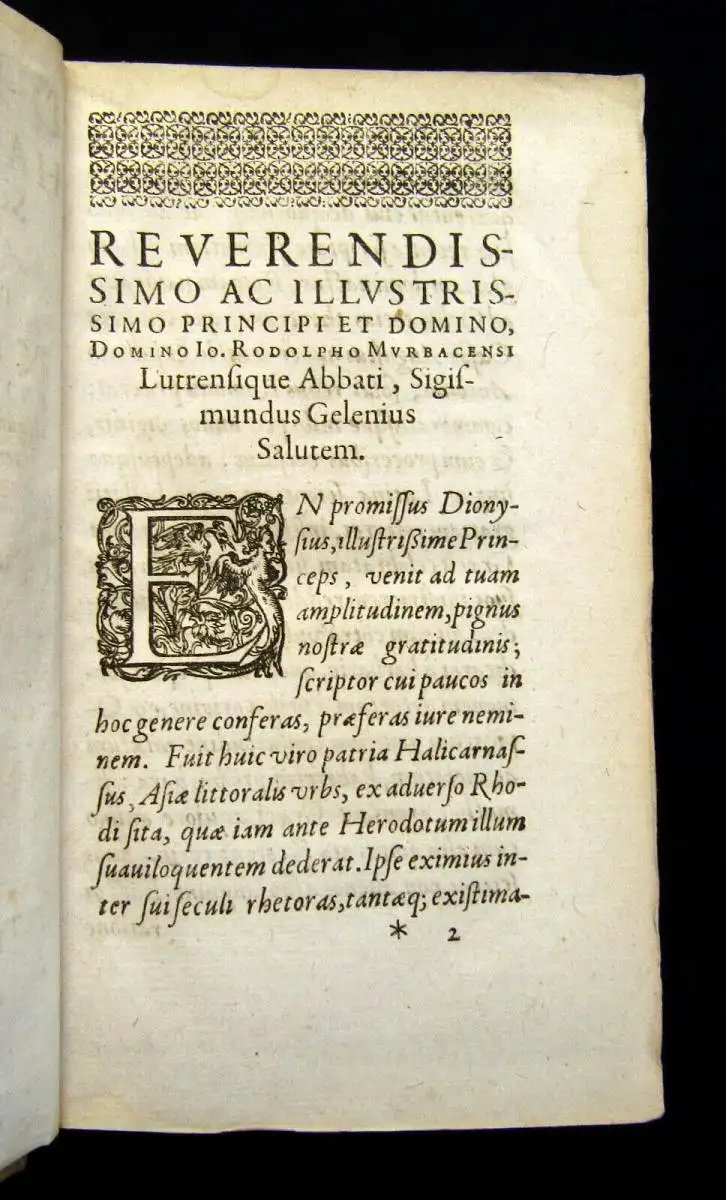 REVERENDIS-
SIMO AC ILLVSTRIS-
SIMO PRINCIPI ET DOMINO,
DOMINO IO. RODOLPHO MVRBACENSI
Lutrenſique Abbati, Sigiſ-
mundus Gelenius
Salutem.
EN promiſſus Diony-
ſius, illuſtrißime Prin-
ceps, venit ad tuam
amplitudinem, pignus
noſtræ gratitudinis;
ſcriptor cui paucos in
hoc genere conferas, præferas iure nemi-
nem. Fuit huic viro patria Halicarnaſ-
ſus, Aſiæ littoralis vrbs, ex aduerſo Rho-
di ſita, quæ iam ante Herodotum illum
ſuauiloquentem dederat. Ipſe eximius in-
ter ſui ſeculi rhetoras, tantæq; exiſtima-
* 2